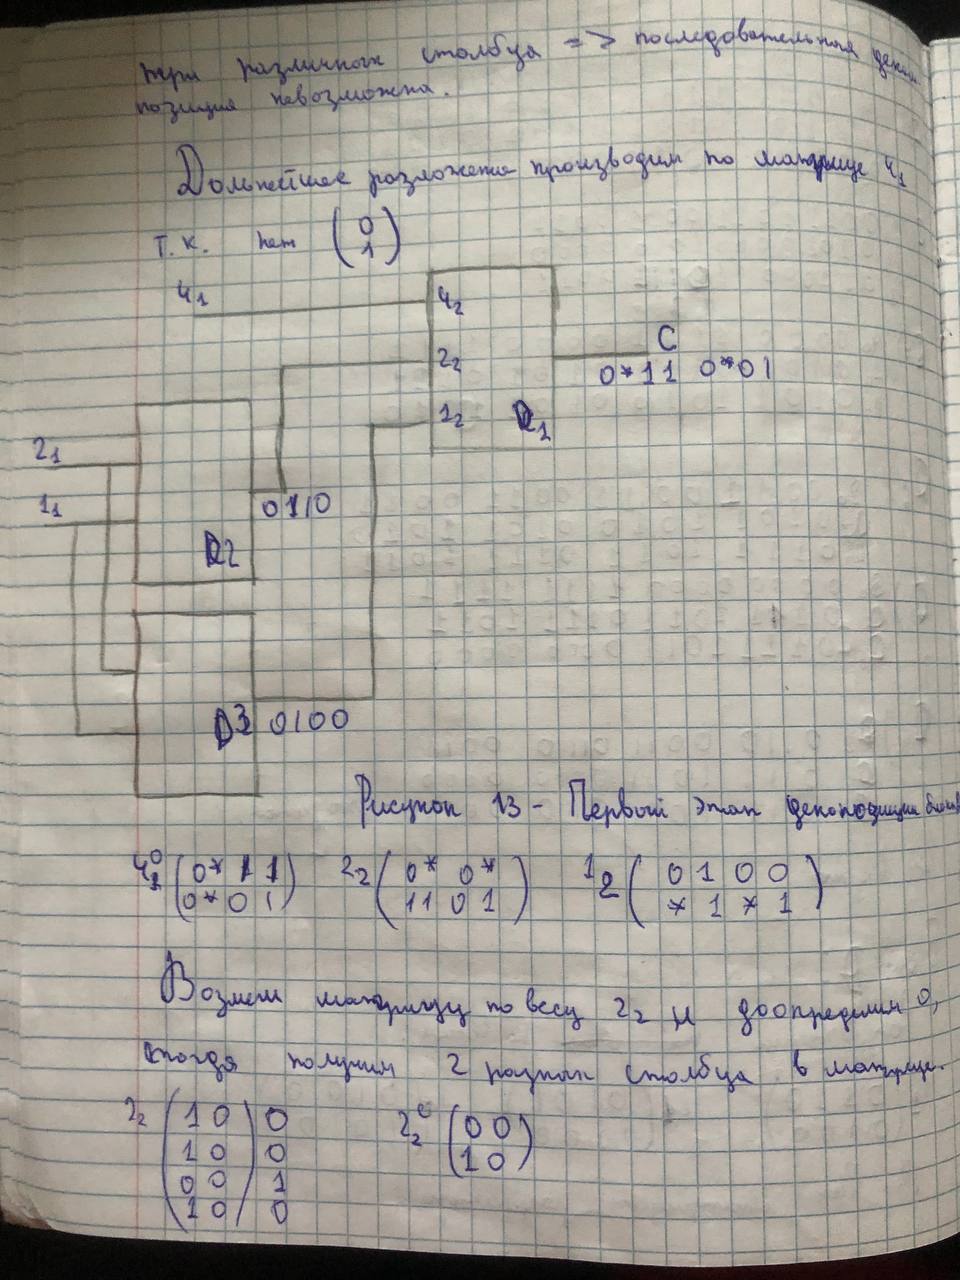 три различных столбца => последовательная деком
позиция невозможна.
Дольнейшее разложение производим по матрице 4₁
т.к. нет (0
1)
4₁
4₂
2₂
C
0*11 0*01
1₂
D1
2₁
1₁
0110
D2
D3 0100
Рисунок 13 - Первый этап декомпозиции
4₁⁰ (0* 1 1) 2₂ (0* 0*) 1₂ (0 1 0 0)
(0* 0 1) (11 0 1) (* 1 * 1)
Возмем матрицу по весу 2₂ и доопределим 0,
тогда получим 2 разных столбца в матрице.
2₂ (1 0) 0 2₂ᶜ (0 0)
(1 0) 0 (1 0)
(0 0) 1
(1 0) 0